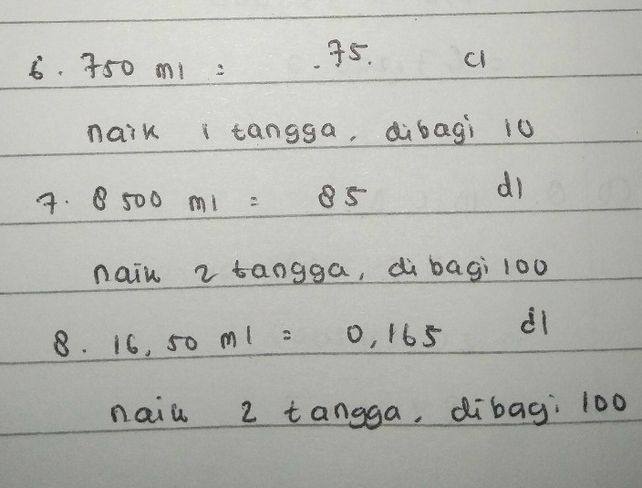 6. 750 ml = .75. cl
naik 1 tangga, dibagi 10
7. 8500 ml = 85 dl
naik 2 tangga, dibagi 100
8. 16,50 ml = 0,165 dl
naik 2 tangga, dibagi 100